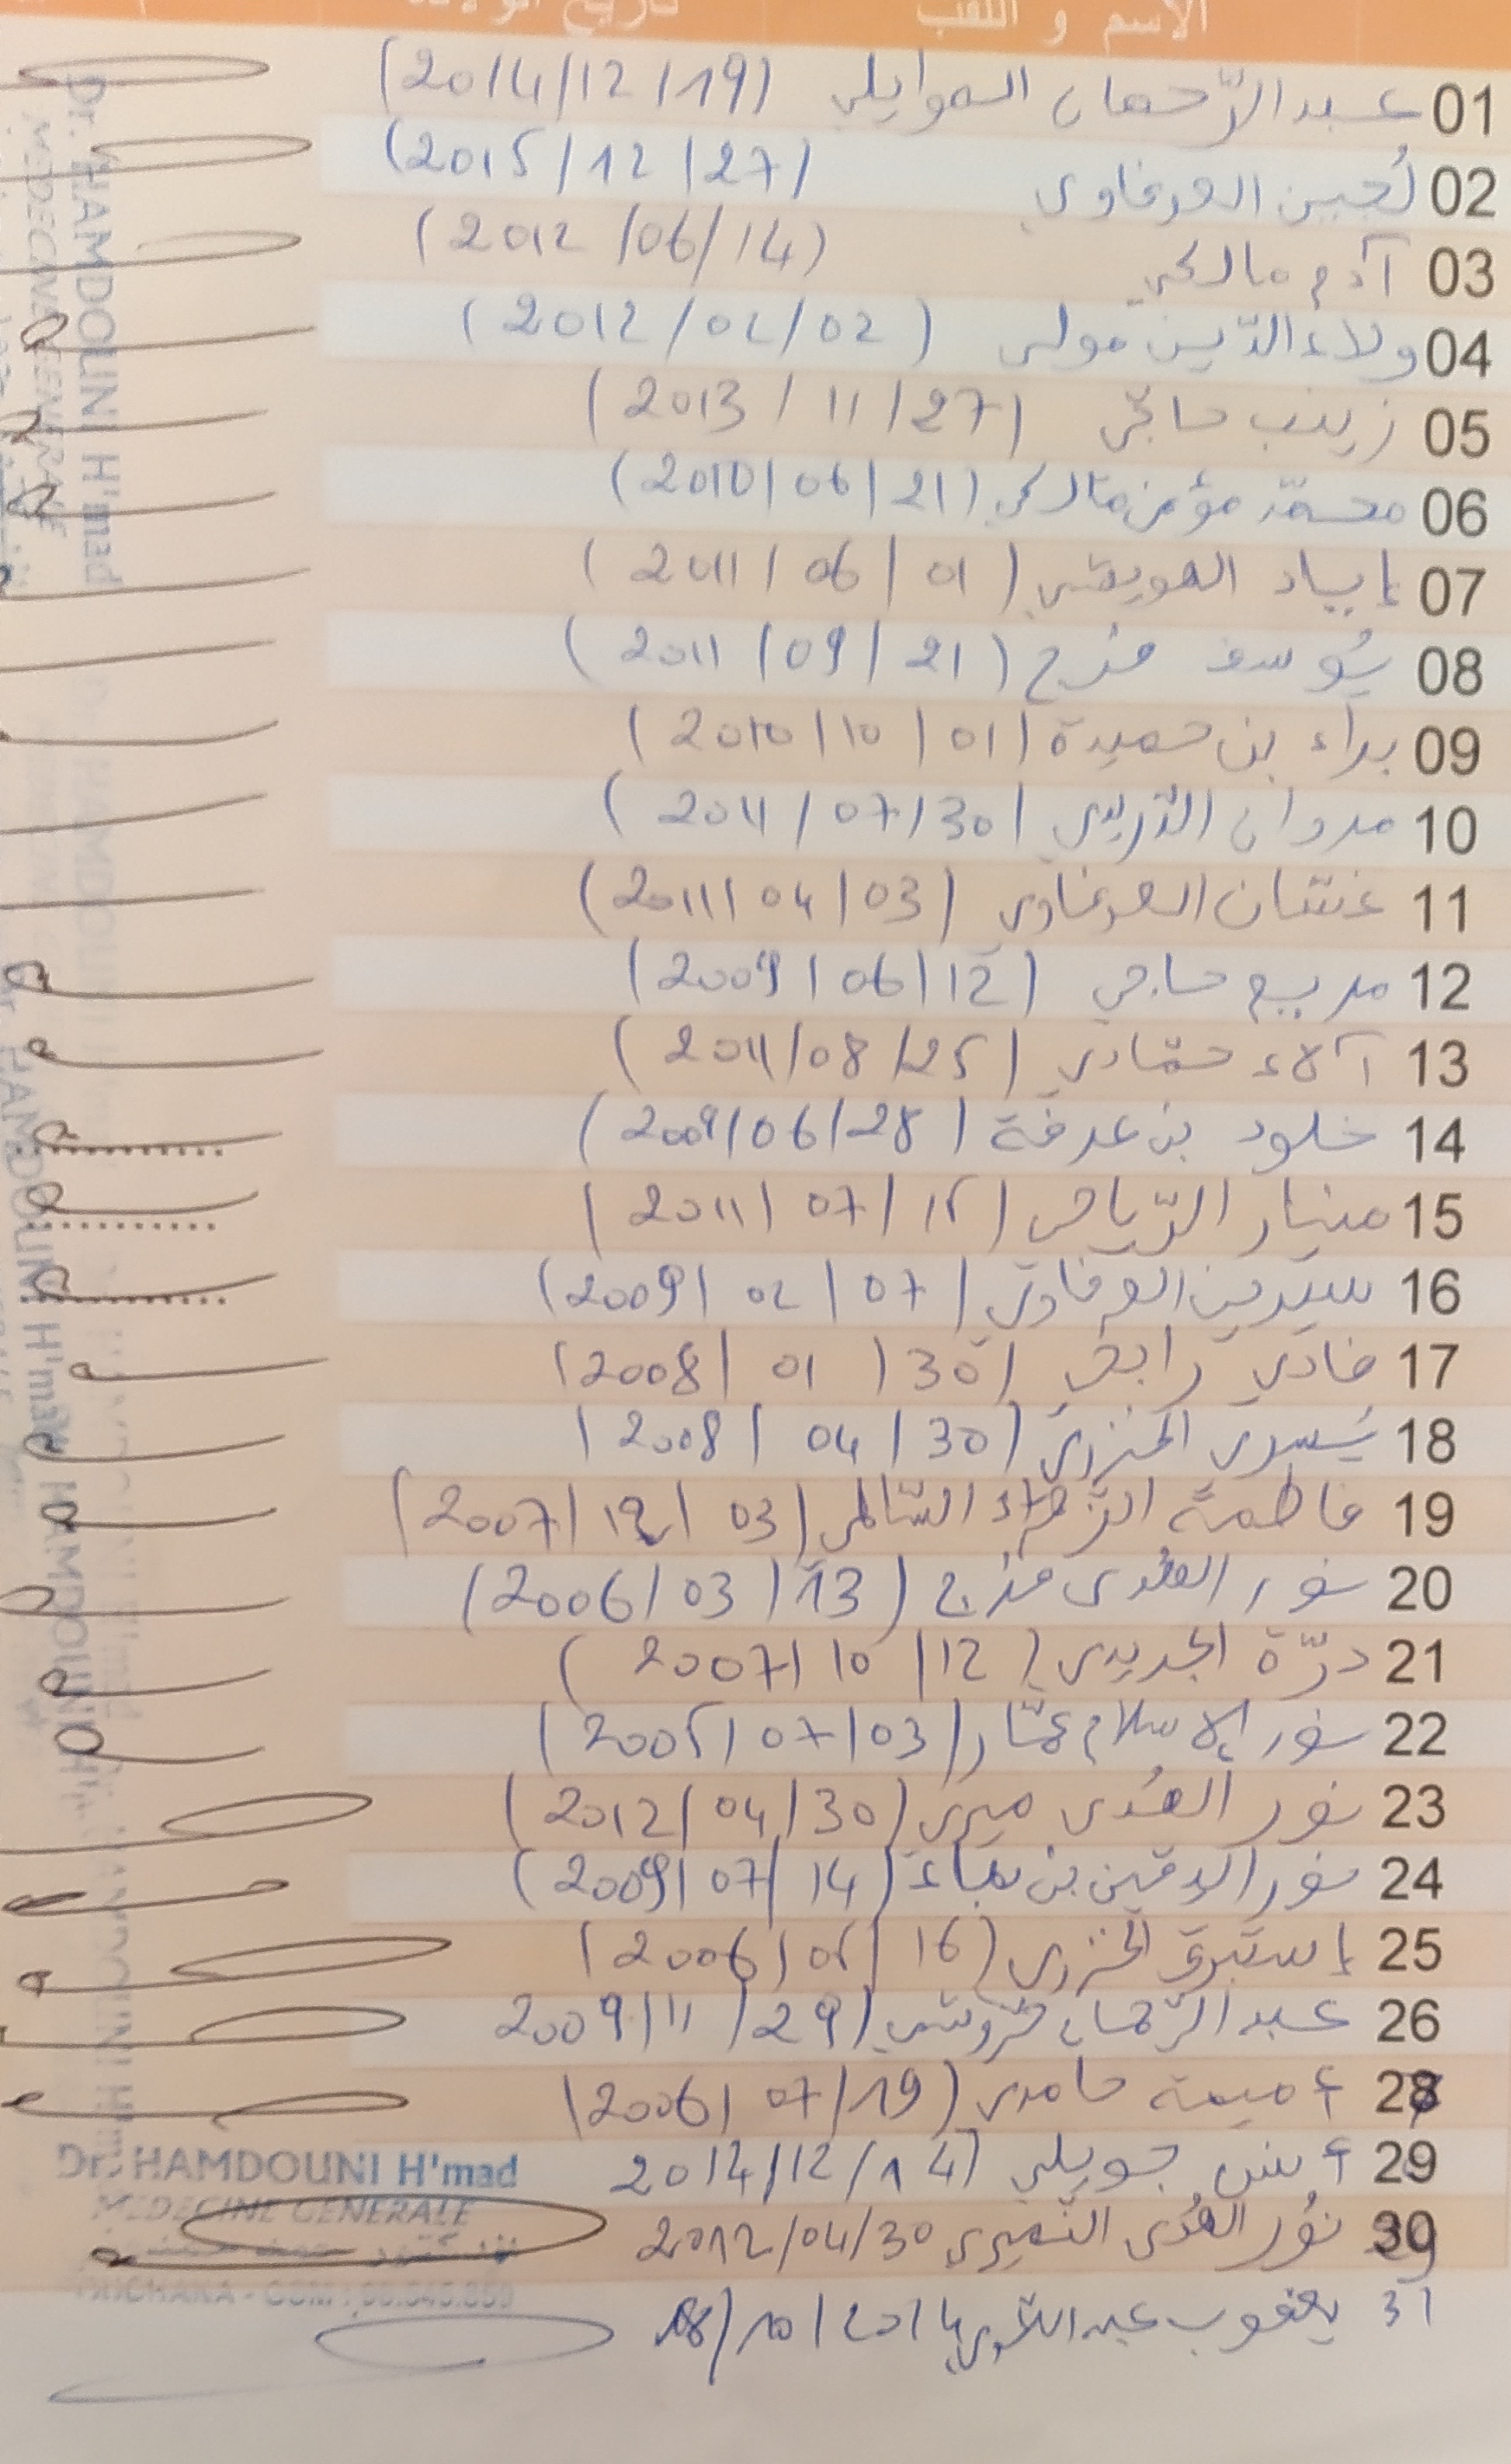 الاسم و اللقب تاريخ الولادة
01 عبد الرّحمان الهوايلي (2014/12/19)
02 لُجين الورغاوي (2015/12/27)
03 آدم مالكي (2012/06/14)
04 ولاء الدّين مولى (2012/02/02)
05 زينب حاجّي (2013/11/27)
06 محمّد مؤمن مالكي (2010/06/21)
07 إياد (2011/06/01)
08 يُوسف فرج (2011/09/21)
09 براء بن حميدة (2010/10/01)
10 مروان (2011/07/30)
11 غسّان (2011/04/03)
12 مريم حاجي (2009/06/12)
13 آلاء حمّادي (2011/08/25)
14 خلود بن عرفة (2009/06/28)
15 منار الرّياحي (2011/07/15)
16 سيرين (2009/02/07)
17 فادي رابحي (2008/01/30)
18 يُسرى (2008/04/30)
19 فاطمة الزّهراء السّالمي (2007/12/03)
20 نور الهُدى فرج (2006/03/13)
21 درّة الجديدي (2007/10/12)
22 نور الإسلام عمّار (2005/07/03)
23 نور الهُدى ميري (2012/04/30)
24 نور اليقين بن (2009/07/14)
25 إستبرق (2006/05/16)
26 عبد الرّحمان (2009/11/29
28 أميمة حامدي (2006/07/19)
29 أنس جويلي (2014/12/14
30 نُور الهُدى النّميري 2012/04/30
31 يعقوب 18/10/2014
Dr. HAMDOUNI H'mad
MEDECINE GENERALE